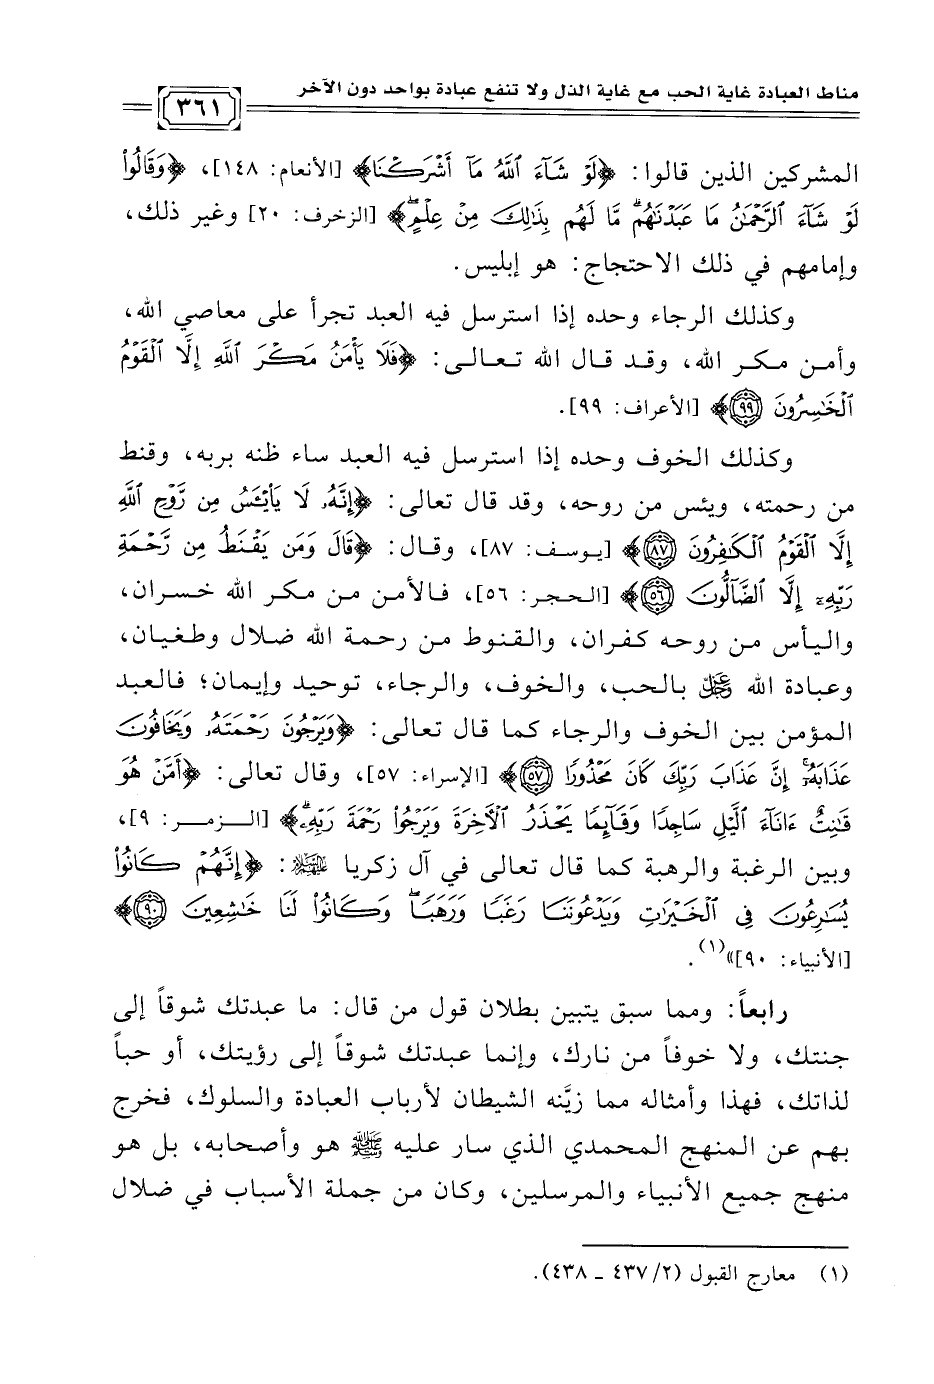 مناط العبادة غاية الحب مع غاية الذل ولا تنفع عبادة بواحد دون الآخر
٣٦١
المشركين الذين قالوا: ﴿لَوْ شَآءَ ٱللَّهُ مَآ أَشْرَكْنَا﴾ [الأنعام: ١٤٨]، ﴿وَقَالُوا۟
لَوْ شَآءَ ٱلرَّحْمَٰنُ مَا عَبَدْنَٰهُمۗ مَّا لَهُم بِذَٰلِكَ مِنْ عِلْمٍۖ﴾ [الزخرف: ٢٠] وغير ذلك،
وإمامهم في ذلك الاحتجاج: هو إبليس.
وكذلك الرجاء وحده إذا استرسل فيه العبد تجرأ على معاصي الله،
وأمن مكر الله، وقد قال الله تعالى: ﴿فَلَا يَأْمَنُ مَكْرَ ٱللَّهِ إِلَّا ٱلْقَوْمُ
ٱلْخَٰسِرُونَ ٩٩﴾ [الأعراف: ٩٩].
وكذلك الخوف وحده إذا استرسل فيه العبد ساء ظنه بربه، وقنط
من رحمته، ويئس من روحه، وقد قال تعالى: ﴿إِنَّهُۥ لَا يَا۟يْـَٔسُ مِن رَّوْحِ ٱللَّهِ
إِلَّا ٱلْقَوْمُ ٱلْكَٰفِرُونَ ٨٧﴾ [يوسف: ٨٧]، وقال: ﴿قَالَ وَمَن يَقْنَطُ مِن رَّحْمَةِ
رَبِّهِۦٓ إِلَّا ٱلضَّآلُّونَ ٥٦﴾ [الحجر: ٥٦]، فالأمن من مكر الله خسران،
واليأس من روحه كفران، والقنوط من رحمة الله ضلال وطغيان،
وعبادة الله عز وجل بالحب، والخوف، والرجاء، توحيد وإيمان؛ فالعبد
المؤمن بين الخوف والرجاء كما قال تعالى: ﴿وَيَرْجُونَ رَحْمَتَهُۥ وَيَخَافُونَ
عَذَابَهُۥٓۚ إِنَّ عَذَابَ رَبِّكَ كَانَ مَحْذُورًا ٥٧﴾ [الإسراء: ٥٧]، وقال تعالى: ﴿أَمَّنْ هُوَ
قَٰنِتٌ ءَانَآءَ ٱلَّيْلِ سَاجِدًا وَقَآئِمًا يَحْذَرُ ٱلْءَاخِرَةَ وَيَرْجُوا۟ رَحْمَةَ رَبِّهِۦۗ﴾ [الزمر: ٩]،
وبين الرغبة والرهبة كما قال تعالى في آل زكريا عليهم السلام: ﴿إِنَّهُمْ كَانُوا۟
يُسَٰرِعُونَ فِى ٱلْخَيْرَٰتِ وَيَدْعُونَنَا رَغَبًا وَرَهَبًاۖ وَكَانُوا۟ لَنَا خَٰشِعِينَ ٩٠﴾
[الأنبياء: ٩٠]»(١).
رابعاً: ومما سبق يتبين بطلان قول من قال: ما عبدتك شوقاً إلى
جنتك، ولا خوفاً من نارك، وإنما عبدتك شوقاً إلى رؤيتك، أو حباً
لذاتك، فهذا وأمثاله مما زيَّنه الشيطان لأرباب العبادة والسلوك، فخرج
بهم عن المنهج المحمدي الذي سار عليه ﷺ هو وأصحابه، بل هو
منهج جميع الأنبياء والمرسلين، وكان من جملة الأسباب في ضلال
(١) معارج القبول (٢/ ٤٣٧ ـ ٤٣٨).